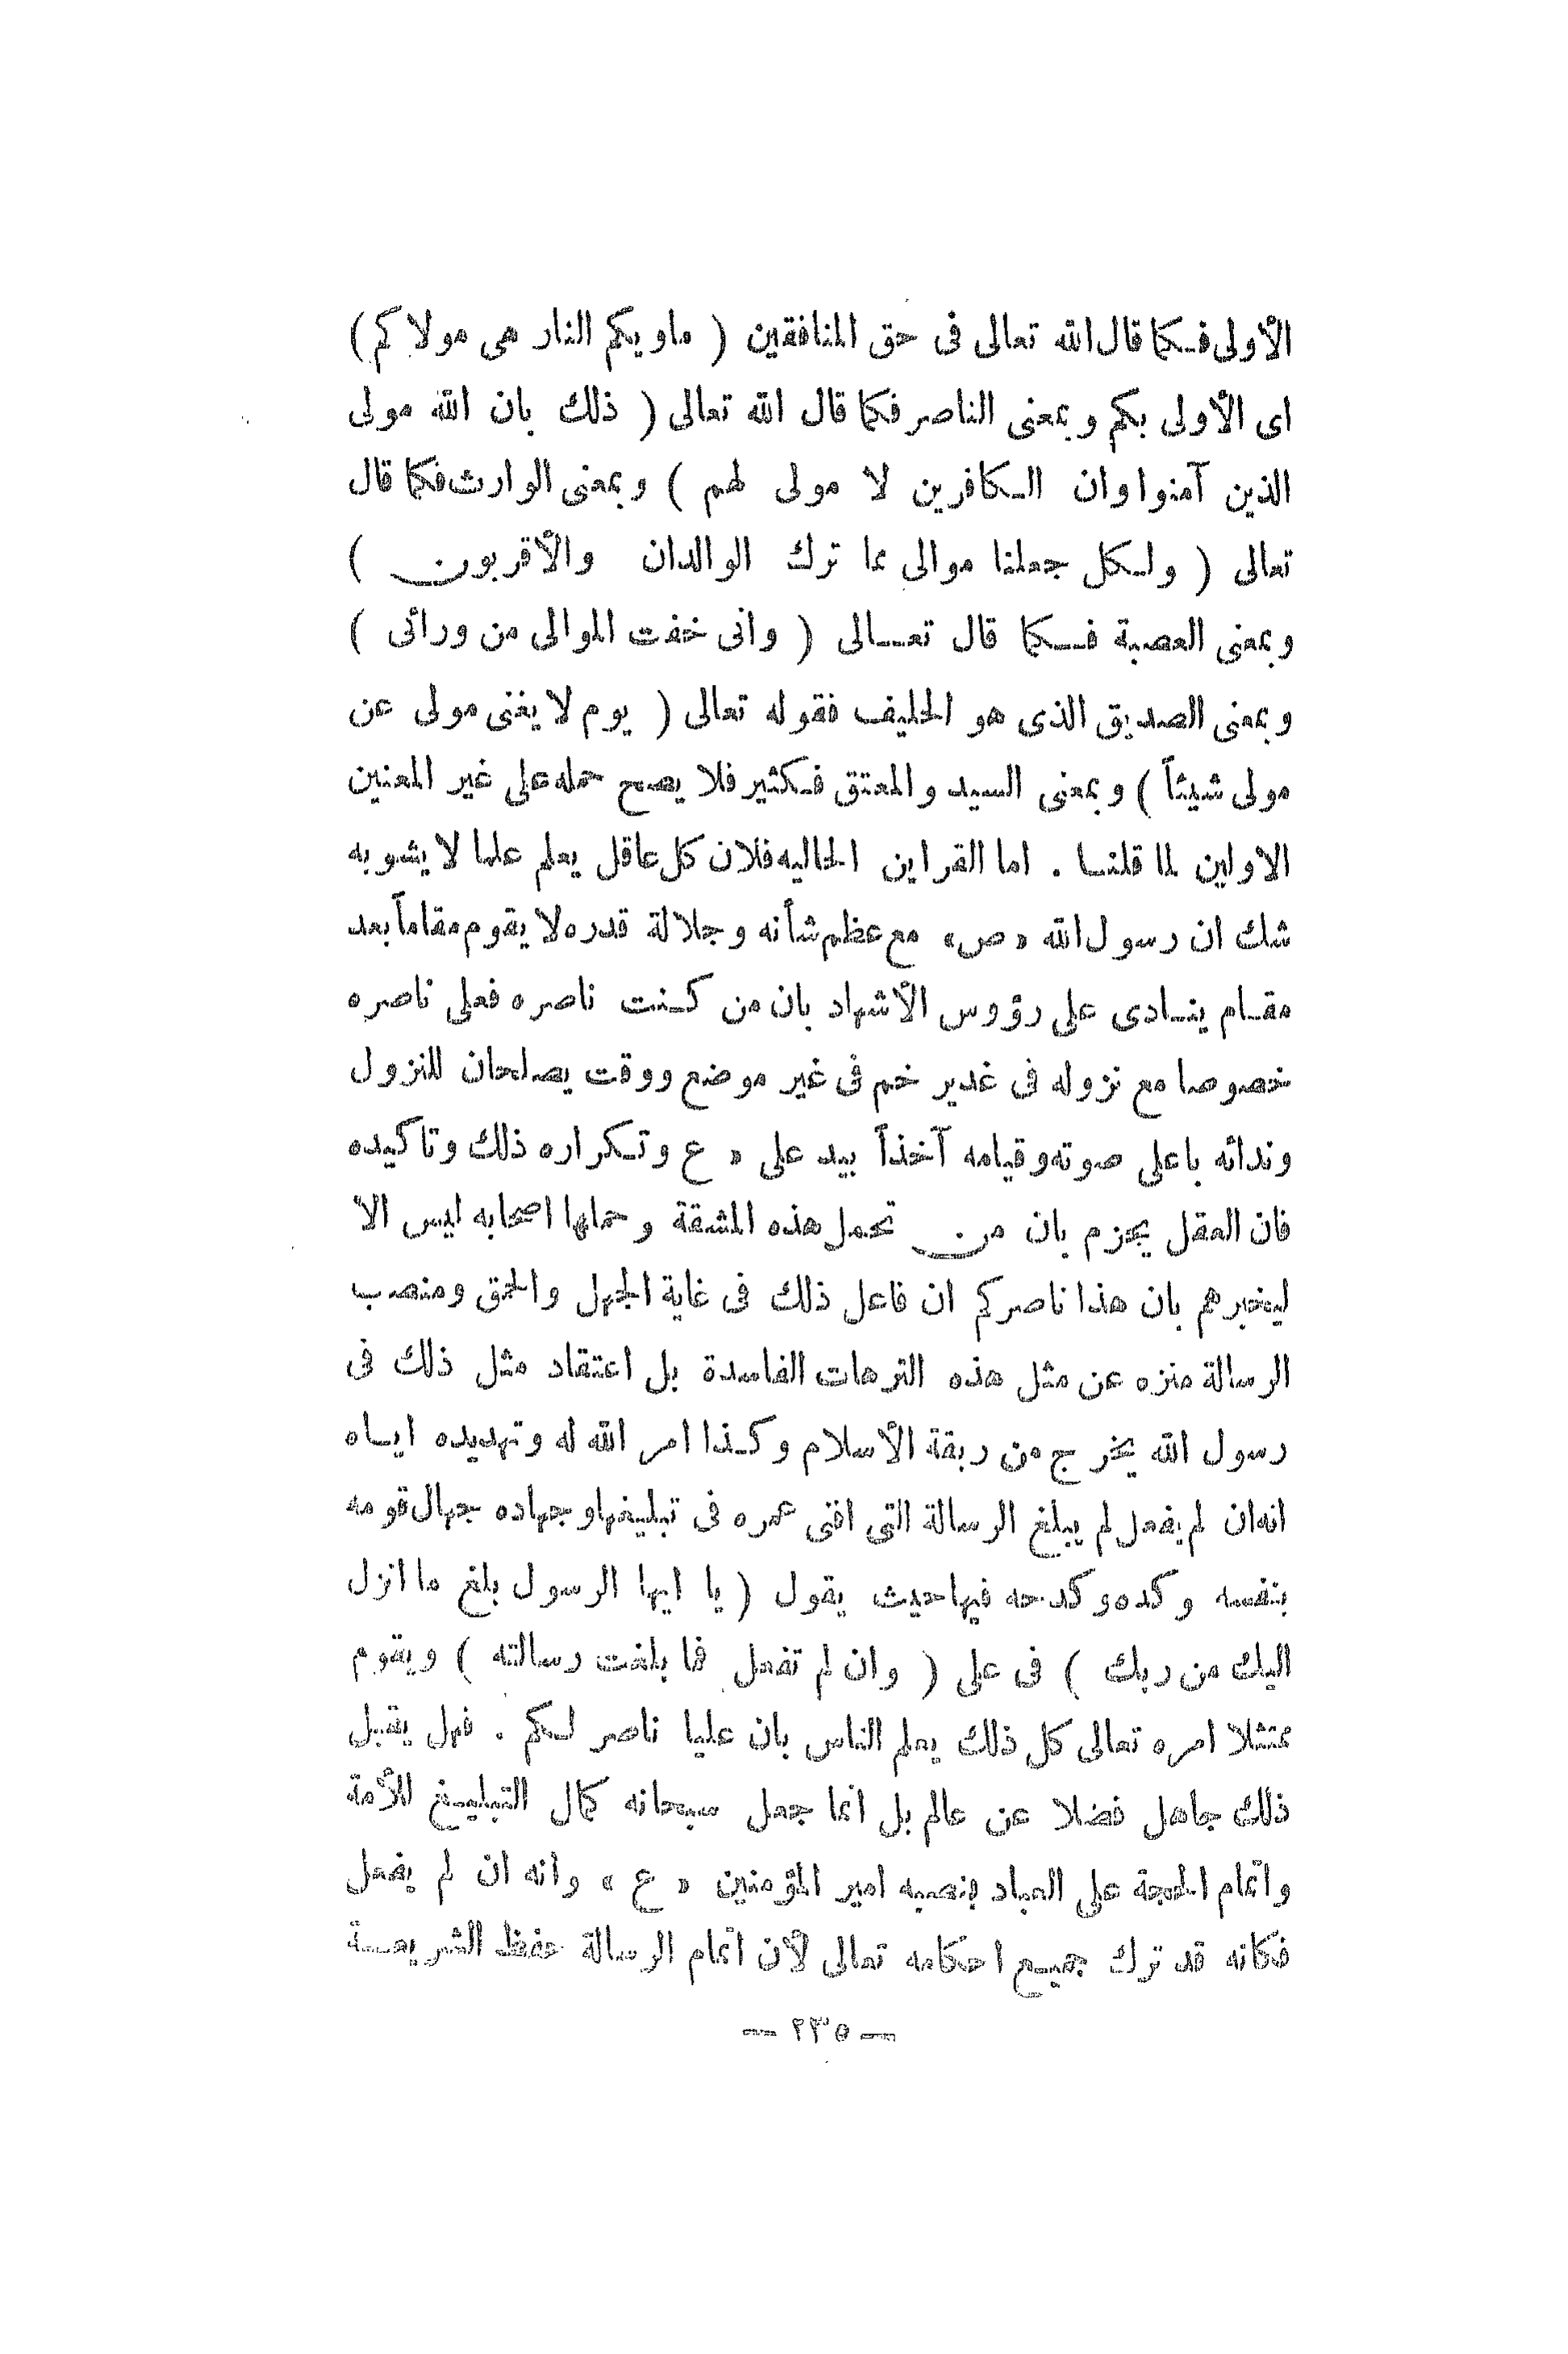 الأولى فكما قال الله تعالى فى حق المنافقين ( ماويكم النار هى مولاكم )
اى الأولى بكم وبمعنى الناصر فكما قال الله تعالى ( ذلك بان الله مولى
الذين آمنوا وان الكافرين لا مولى لهم ) وبمعنى الوارث فكما قال
تعالى ( ولكل جعلنا موالى مما ترك الوالدان والأقربون )
وبمعنى العصبة فكما قال تعالى ( وانى خفت الموالى من ورائى )
وبمعنى الصديق الذى هو الحليف فقوله تعالى ( يوم لا يغنى مولى عن
مولى شيئاً ) وبمعنى السيد والمعتق فكثير فلا يصح حمله على غير المعنين
الاولين لما قلنا . اما القراين الحاليه فلان كل عاقل يعلم علما لا يشوبه
شك ان رسول الله « ص » مع عظم شأنه وجلالة قدره لا يقوم مقاماً بعد
مقام ينادى على رؤوس الأشهاد بان من كنت ناصره فعلى ناصره
خصوصا مع نزوله فى غدير خم فى غير موضع ووقت يصلحان للنزول
وندائه باعلى صوته وقيامه آخذاً بيد على « ع وتكراره ذلك وتاكيده
فان العقل يجزم بان من تحمل هذه المشقة وحملها اصحابه ليس الا
ليخبرهم بان هذا ناصركم ان فاعل ذلك فى غاية الجهل والحمق ومنصب
الرسالة منزه عن مثل هذه الترهات الفاسدة بل اعتقاد مثل ذلك فى
رسول الله يخرج من ربقة الأسلام وكذا امر الله له وتهديده اياه
انه ان لم يفعل لم يبلغ الرسالة التى افنى عمره فى تبليغها وجهاده جهال قومه
بنفسه وكده وكدحه فيها حيث يقول ( يا ايها الرسول بلغ ما انزل
اليك من ربك ) فى على ( وان لم تفعل فما بلغت رسالته ) ويقوم
ممتثلا امره تعالى كل ذلك يعلم الناس بان عليا ناصر لكم . فهل يقبل
ذلك جاهل فضلا عن عالم بل انما جعل سبحانه كمال التبليغ للأمة
واتمام الحجة على العباد بنصبه امير المؤمنين « ع » وانه ان لم يفعل
فكانه قد ترك جميع احكامه تعالى لأن اتمام الرسالة حفظ الشريعة
— ٢٣٥ —